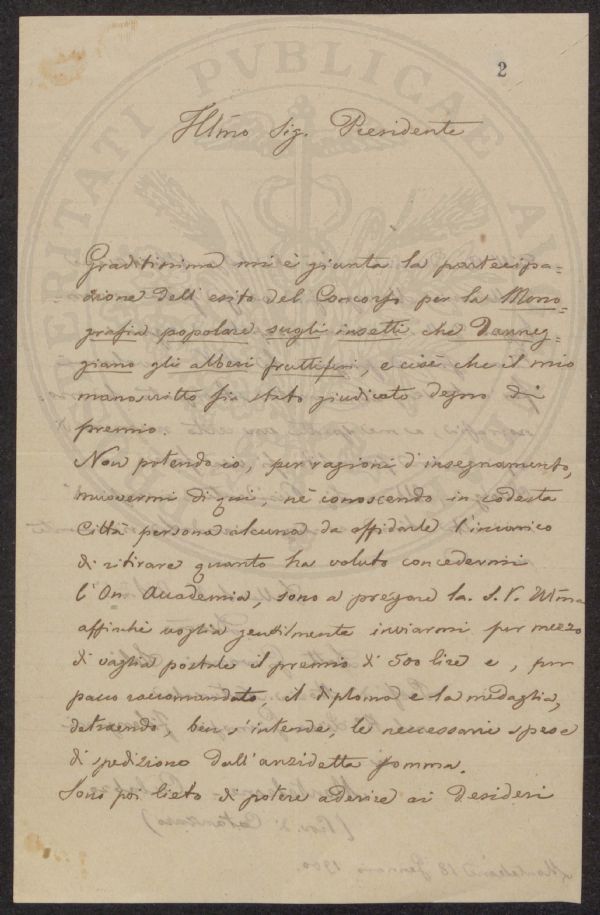 2
Illmo Sig. Presidente
Graditissima mi è giunta la partecipa=
=zione dell'esito del Concorso per la Mono=
grafia popolare sugli insetti che Danneg=
giano gli alberi fruttiferi, e cioè che il mio
manoscritto sia stato giudicato degno di
premio.
Non potendo io, per ragioni d'insegnamento,
muovermi di qui, nè conoscendo in codesta
Città persona alcuna da affidarle l'incarico
di ritirare quanto ha voluto concedermi
l'On. Accademia, sono a pregare la S. V. Illma
affinchè voglia gentilmente inviarmi per mezzo
di vaglia postale il premio di 500 lire e, per
pacco raccomandato, il diploma e la medaglia,
detraendo, ben s'intende, le necessarie spese
di spedizione dall'anzidetta somma.
Sono poi lieto di potere aderire ai desideri
(Prov. di Catanzaro)
18 Gennaio 1900.